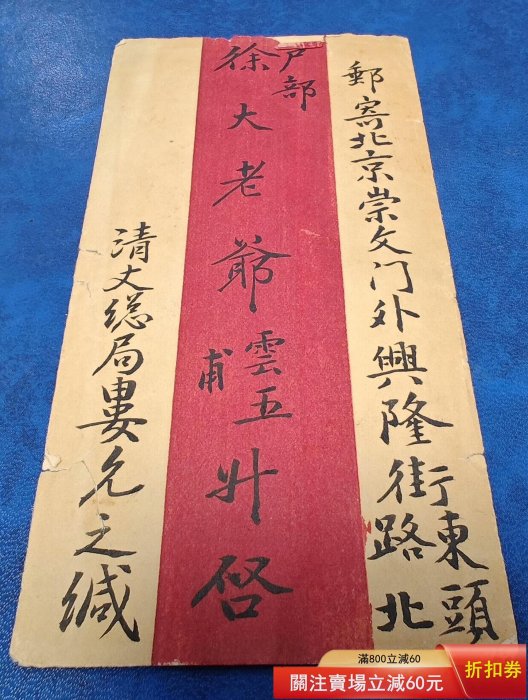 郵寄北京崇文门外興隆街東頭路北
户部
徐大老爺雲五甫升啓
清丈総局婁允之緘
滿800立減60
關注賣場立減60元
折扣券